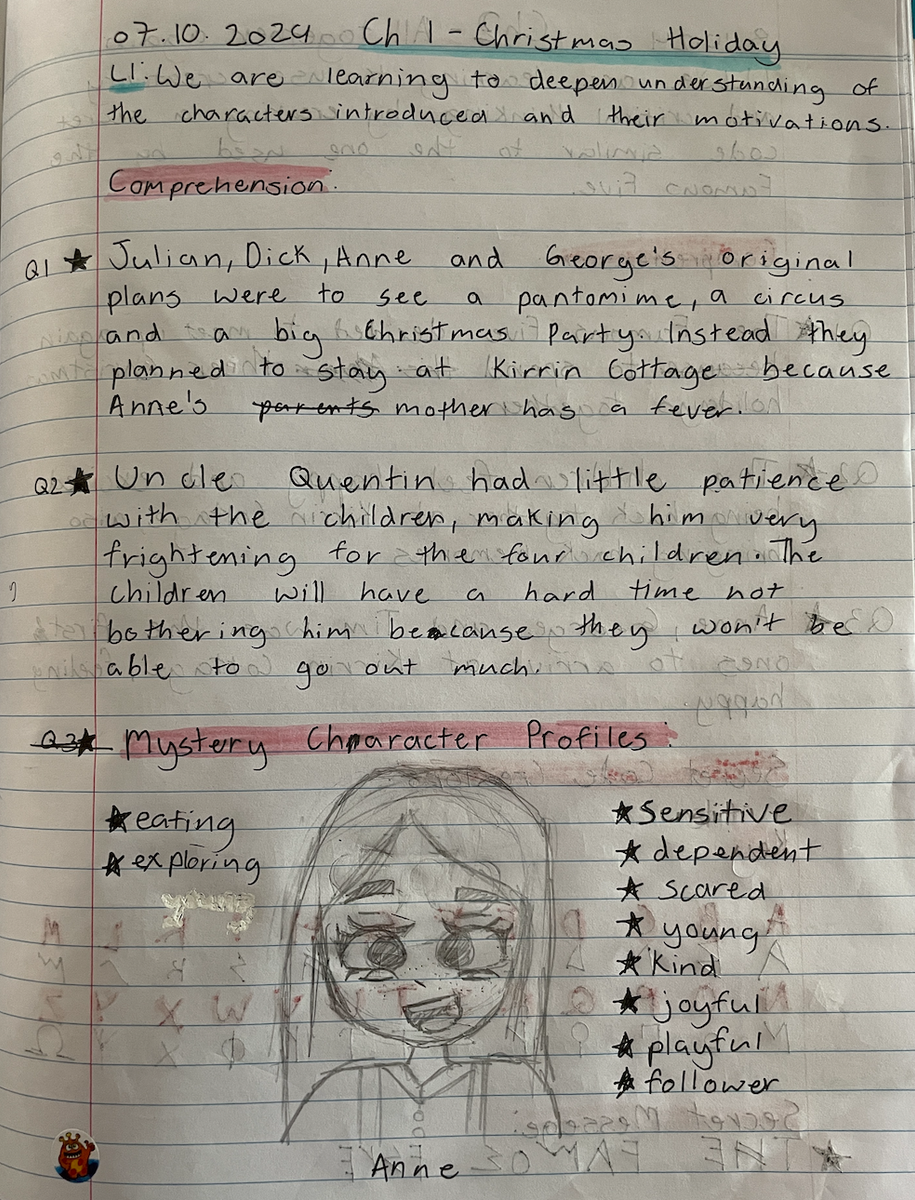 07.10.2024 Ch 1 - Christmas Holiday
LI: We are learning to deepen understanding of
the characters introduced and their motivations.
Comprehension.
Q1 ★ Julian, Dick, Anne and George's original
plans were to see a pantomime, a circus
and a big Christmas Party. Instead they
planned to stay at Kirrin Cottage because
Anne's parents mother has a fever.
Q2 ★ Uncle Quentin had little patience
with the children, making him very
frightening for the four children. The
children will have a hard time not
bothering him because they won't be
able to go out much.
Q3 ★ Mystery Character Profiles:
★ eating
★ exploring
★ Sensitive
★ dependent
★ scared
★ young
★ kind
★ joyful
★ playful
★ follower
Anne